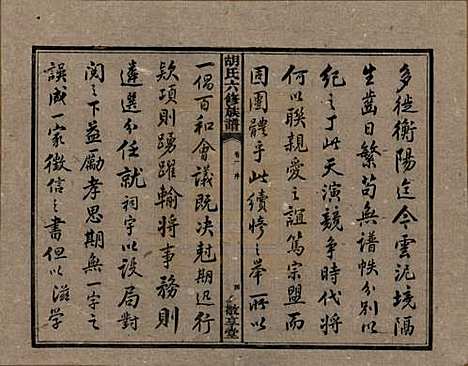 多徙衡陽迄今雲泥境隔
生齒日繁苟無譜帙分別以
紀之丁此天演競爭時代將
何以聯親愛之誼篤宗盟而
固團體乎此續修之舉所以
胡氏六修族譜
卷一 序
四
敬享堂
一倡百和會議既決尅期迅行
欵項則踴躍輸將事務則
遴選分任就祠宇以設局對
閔之下益勵孝思期無一字之
誤成一家徵信之書但以滋學